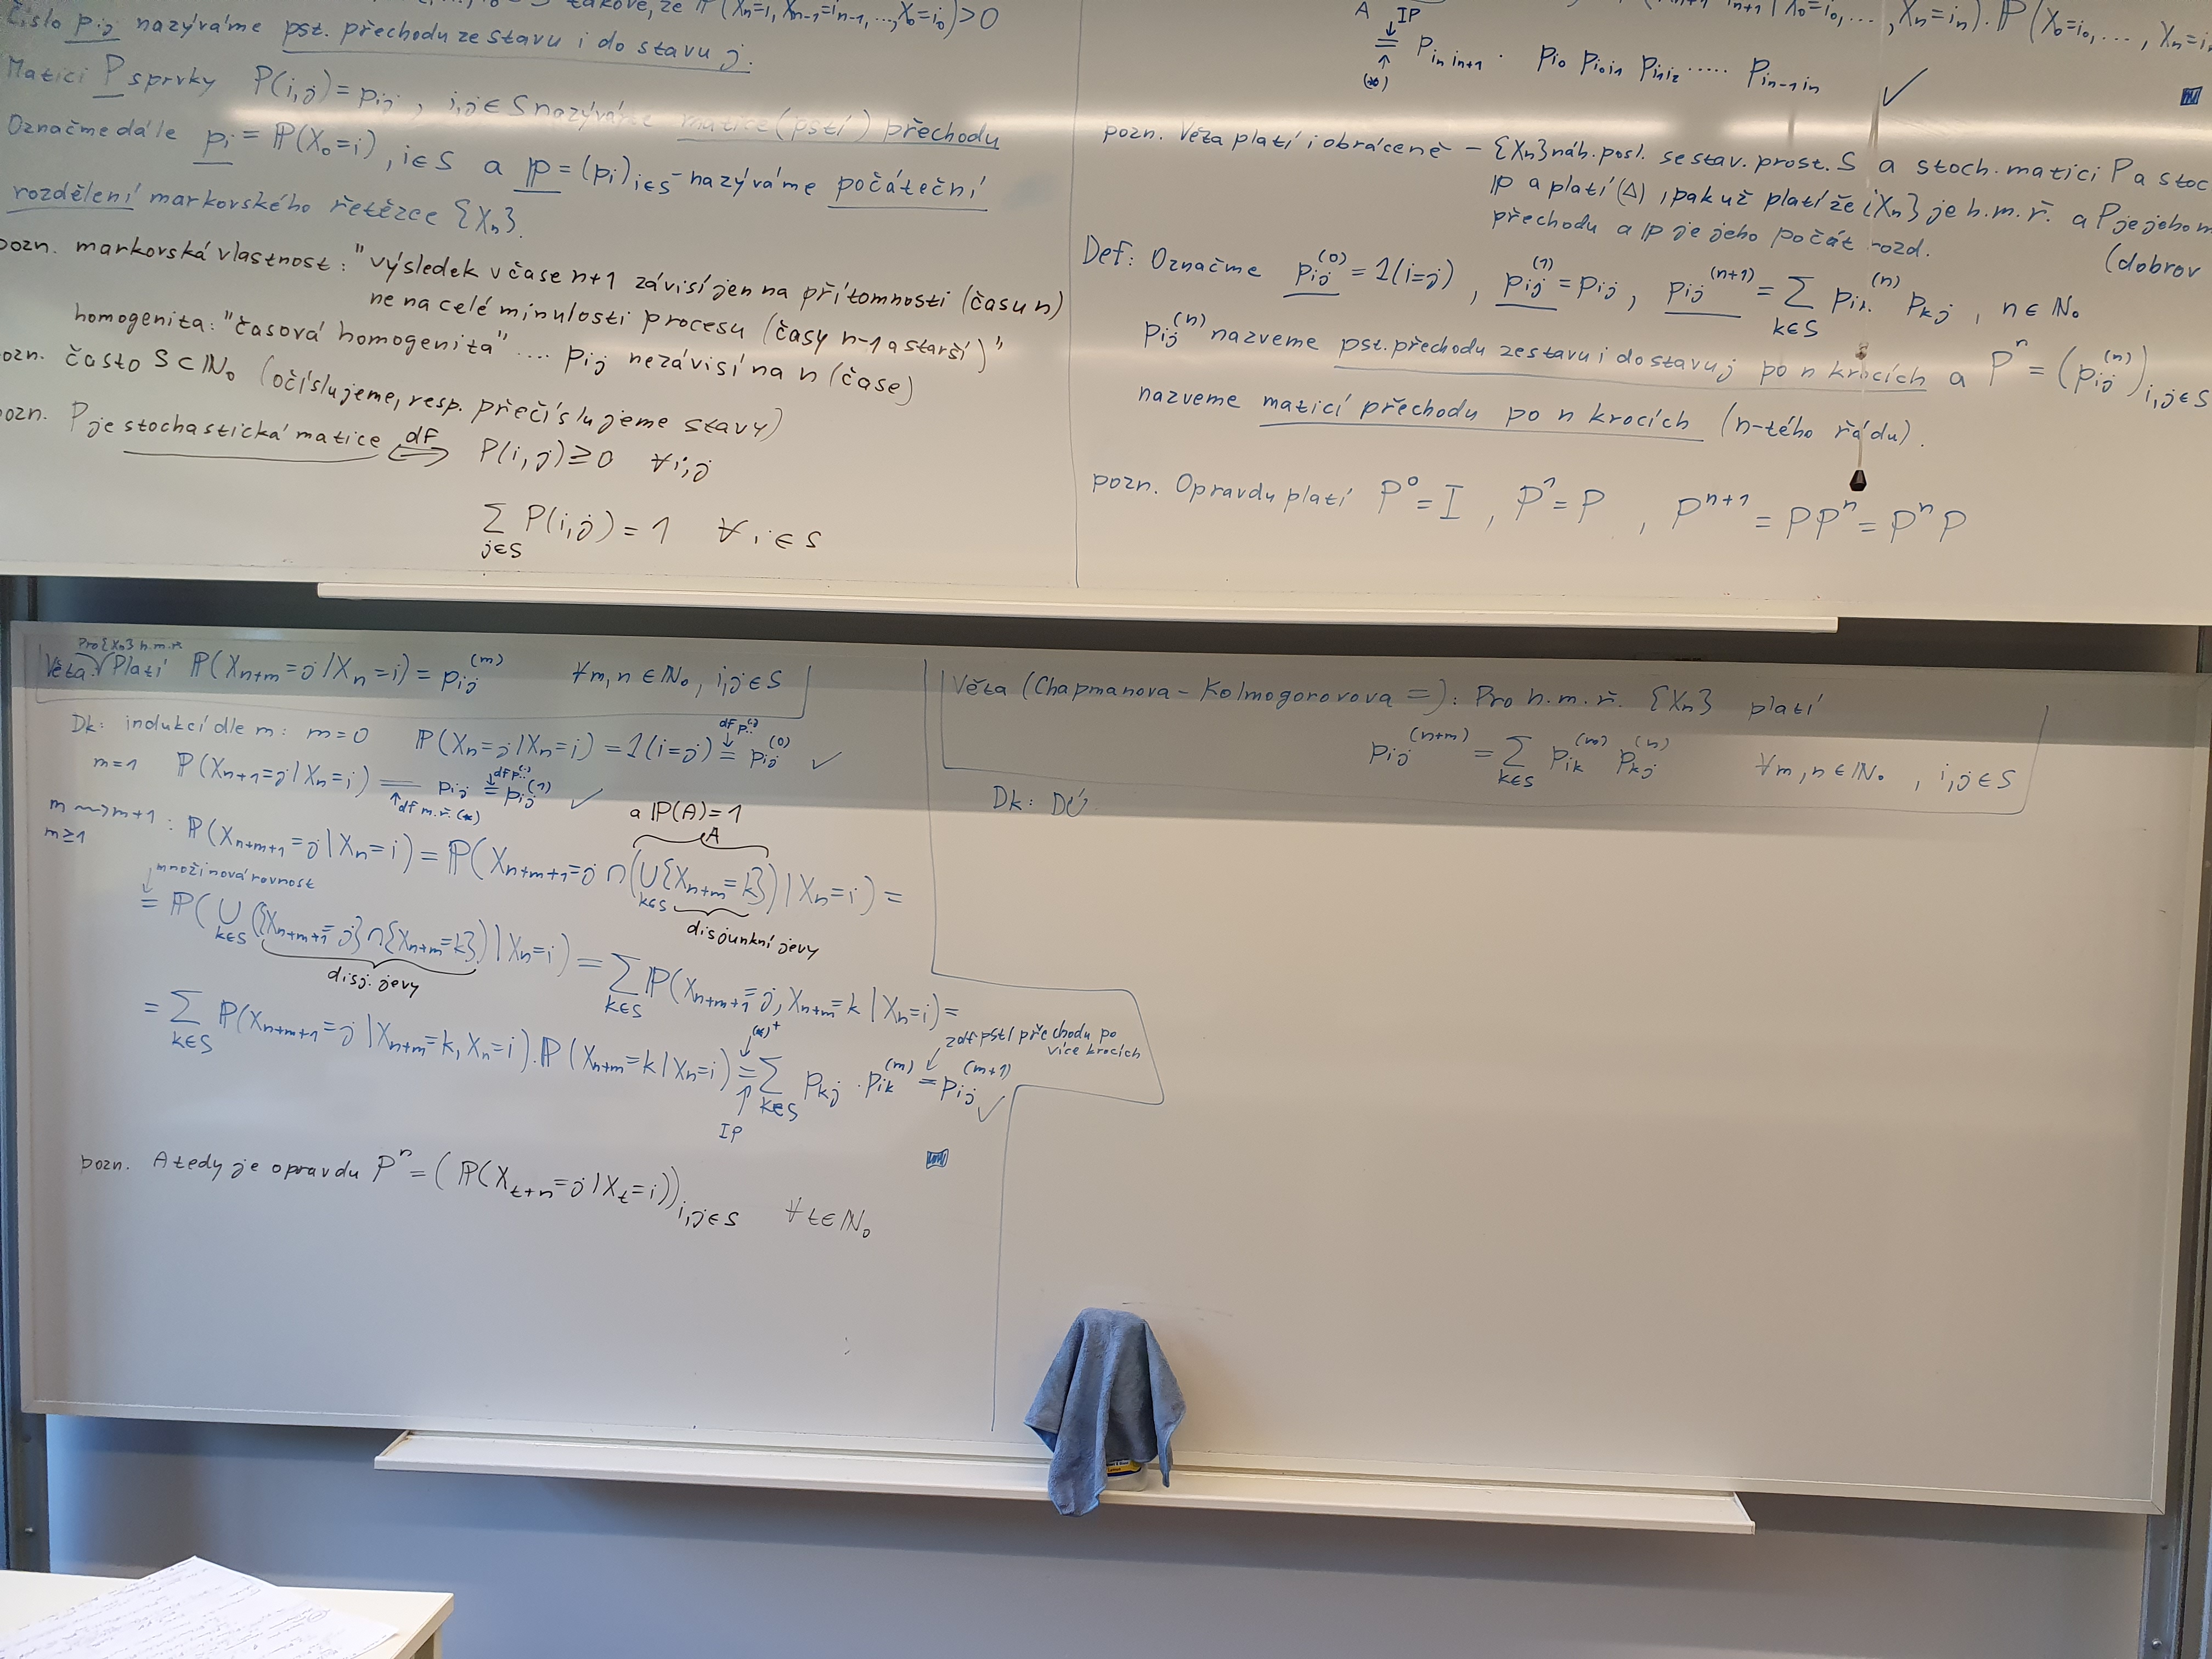 takové, že P(Xn=i, Xn-1=in-1, ..., X0=i0)>0
Číslo pij nazýváme pst. přechodu ze stavu i do stavu j.
Matici P s prvky P(i,j)=pij, i,j∈S nazýváme matice (pstí) přechodu
Označme dále pi = P(X0=i), i∈S a p=(pi)i∈S nazýváme počáteční
rozdělení markovského řetězce {Xn}.
pozn. markovská vlastnost: "výsledek v čase n+1 závisí jen na přítomnosti (času n)
ne na celé minulosti procesu (časy n-1 a starší)"
homogenita: "časová homogenita" .... pij nezávisí na n (čase)
pozn. často S⊂N0 (očíslujeme, resp. přečíslujeme stavy)
pozn. P je stochastická matice df⟺ P(i,j)≥0 ∀i,j
∑j∈S P(i,j)=1 ∀i∈S
A IP
= pin in+1 · pi0 pi0i1 pi1i2 ..... pin-1in ✓
(*)
pozn. Věta platí i obráceně - {Xn} náh. posl. se stav. prost. S a stoch. matici P a stoc
p a platí (Δ), pak už platí že {Xn} je h.m.ř. a P je jeho m
přechodu a p je jeho počát. rozd.
(dobrov
Def: Označme pij(0)=1(i=j), pij(1)=pij, pij(n+1)=∑k∈S pik(n) pkj, n∈N0
pij(n) nazveme pst. přechodu ze stavu i do stavu j po n krocích a Pn=(pij(n))i,j∈S
nazveme maticí přechodu po n krocích (n-tého řádu).
pozn. Opravdu platí P0=I, P1=P, Pn+1=PPn=PnP
Pro {Xn} h.m.ř.
Věta: Platí P(Xn+m=j|Xn=i)=pij(m) ∀m,n∈N0, i,j∈S
Dk: indukcí dle m: m=0 P(Xn=j|Xn=i)=1(i=j) = pij(0) ✓
df p..(.)
m=1 P(Xn+1=j|Xn=i) = pij = pij(1) ✓
df m.ř. (*)
df p..(.)
a P(A)=1
A
m⇝m+1: P(Xn+m+1=j|Xn=i)=P(Xn+m+1=j∩(∪k∈S{Xn+m=k})|Xn=i)=
m≥1
disjunkní jevy
množinová rovnost
=P(∪k∈S({Xn+m+1=j}∩{Xn+m=k})|Xn=i)=∑k∈S P(Xn+m+1=j, Xn+m=k|Xn=i)=
disj. jevy
=∑k∈S P(Xn+m+1=j|Xn+m=k, Xn=i)·P(Xn+m=k|Xn=i)=∑k∈S pkj·pik(m)=pij(m+1) ✓
(*)+
IP
z df pstí přechodu po
více krocích
pozn. A tedy je opravdu Pn=(P(Xt+n=j|Xt=i))i,j∈S ∀t∈N0
Věta (Chapmanova-Kolmogorovova =): Pro h.m.ř. {Xn} platí
pij(n+m)=∑k∈S pik(m) pkj(n) ∀m,n∈N0, i,j∈S
Dk: DÚ